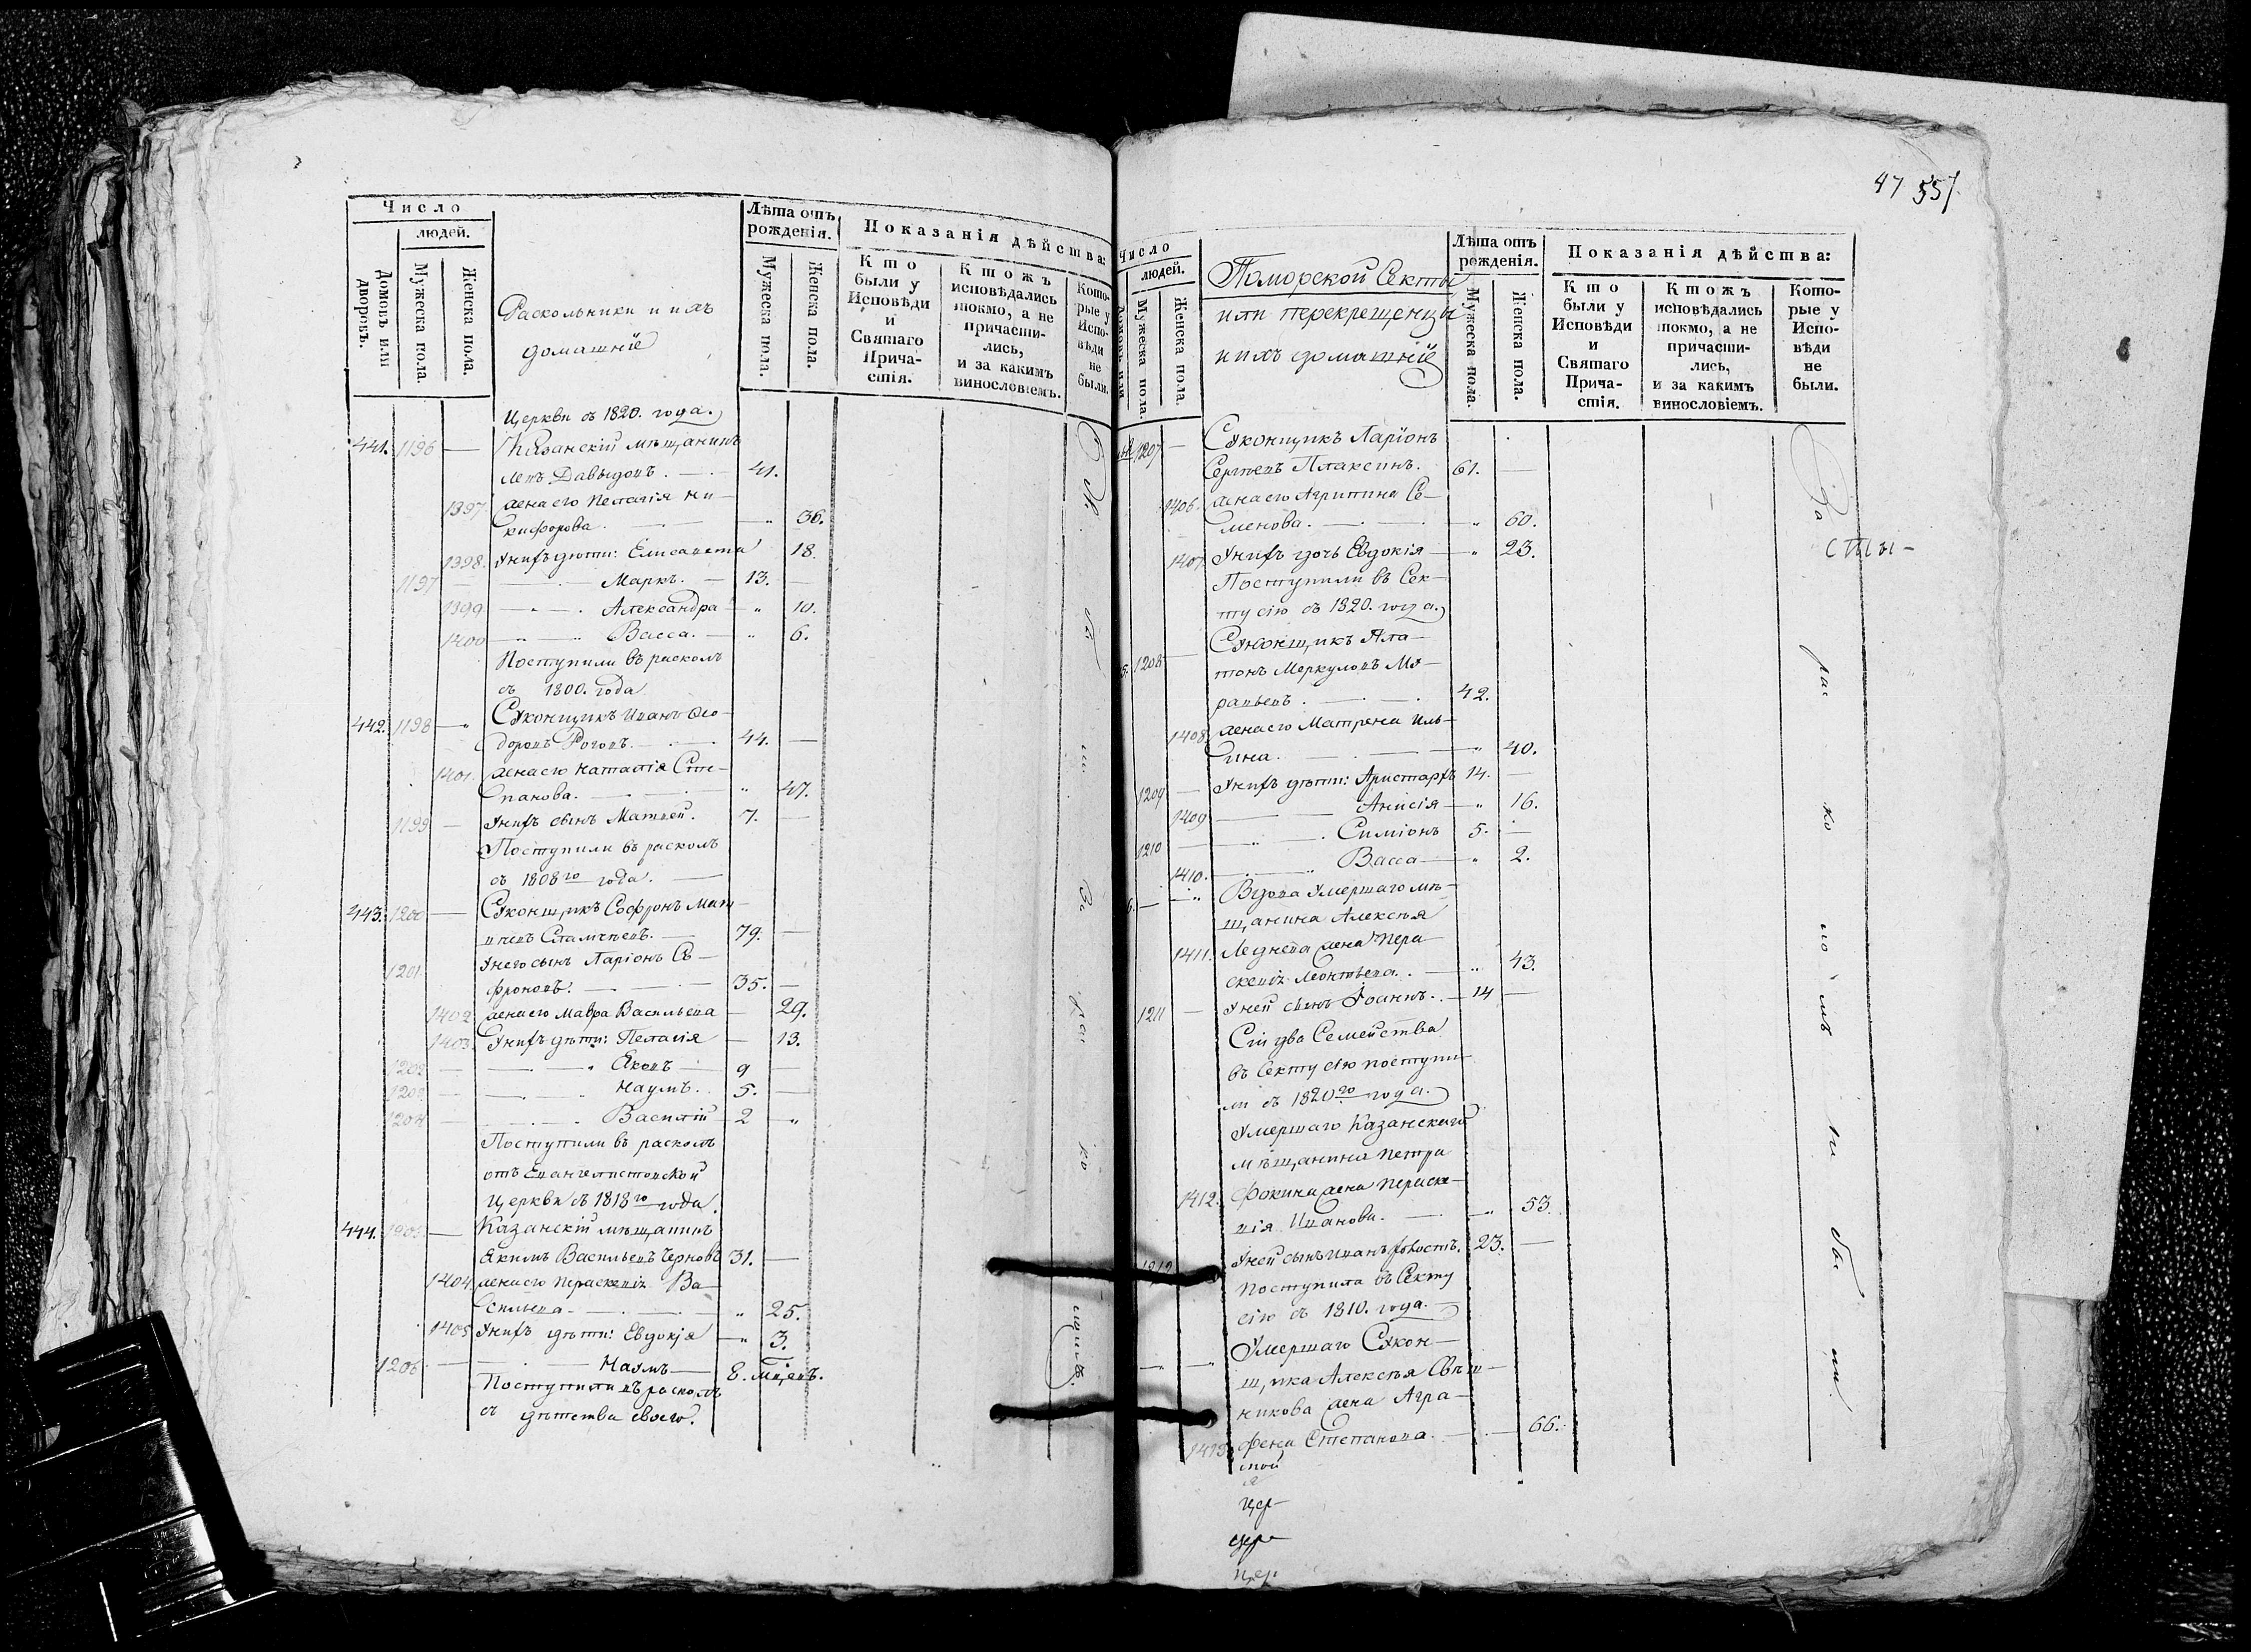 Число
людей.
Домовъ или дворовъ.
Мужеска пола.
Женска пола.
Раскольники и ихъ
домашніе
Лѣта отъ
рожденія.
Мужеска пола.
Женска пола.
Показанія дѣйства:
Кто были у Исповѣди и Святаго Причастія.
Ктожъ исповѣдались токмо, а не причастились, и за какимъ винословіемъ.
Которые у Исповѣди не были.
Церкви съ 1820. года.
441. 1196 — Казанскій мѣщанинъ
Давыдовъ. — 41.
1397. жена его Пелагія Ни-
кифорова. — „ 36.
1398. У нихъ дѣти: Елисавета 18.
1197 — Маркъ. — 13. —
1399 — Александра „ 10.
1400 — Васса. — „ 6.
Поступили въ расколъ
съ 1800. года
442. 1198 — Суконщикъ Иванъ Ѳео-
доровъ Роговъ. — 44. —
1401. жена его Наталія Сте-
панова. — „ 47.
1199 — У нихъ сынъ Матвей. 7. —
Поступили въ расколъ
съ 1808го года. —
443. 1200 — Суконщикъ Софронъ Мат-
вѣевъ — 79. —
1201 У него сынъ Ларіонъ Со-
фроновъ. — 35. —
1402 жена его Мавра Васильева — 29.
1403. У нихъ дѣти: Пелагія — 13.
1202 — Яковъ — 9 —
1203 — Наумъ. 5. —
1204 — Василій 2 „
Поступили въ расколъ
отъ Евангелистовской
Церкви съ 1818го года.
444. 1205 — Казанскій мѣщанинъ
Якимъ Васильевъ Черновъ 31. —
1404. жена его Параскевія Ва-
сильева — „ 25.
1405 У нихъ дѣти: Евдокія — „ 3.
1206 — Наумъ — 8. мцевъ.
Поступили въ расколъ
съ дѣтства своего.
47 557.
Число
людей.
Мужеска пола.
Женска пола.
Поморской Секты
или перекрещенцы
и ихъ домашніе
Лѣта отъ
рожденія.
Мужеска пола.
Женска пола.
Показанія дѣйства:
Кто были у Исповѣди и Святаго Причастія.
Ктожъ исповѣдались токмо, а не причастились, и за какимъ винословіемъ.
Которые у Исповѣди не были.
1207 — Суконщикъ Ларіонъ
Сергѣевъ Плаксинъ. 61. —
1406. жена его Агрипина Се-
менова. — „ 60.
1407 У нихъ дочь Евдокія — „ 23.
Поступили въ Сек-
ту сію съ 1820. года.
5. 1208 — Суконщикъ Пла-
тонъ Меркуловъ Му-
равьевъ. — 42.
1408. жена его Матрена Иль-
ина. — „ 40.
1209 — У нихъ дѣти: Аристархъ 14. —
1409 — Анисія — „ 16.
1210 — Симіонъ 5. —
1410. — Васса — „ 2.
6. — Вдова умершаго мѣ-
щанина Алексѣя
1411. Леднева жена Пера-
скевія Леонтьева. — „ 43.
1211 — У ней сынъ Іоаннъ. — 14 —
Сіи два Семейства
въ Секту сію поступи-
ли съ 1820го года.
Умершаго Казанскаго
мѣщанина Петра
1412. Фокина жена Параске-
вія Иванова. — „ 53.
1212 У ней сынъ Иванъ холостъ. 23. —
Поступила въ Секту
сію съ 1810. года.
Умершаго Сукон-
щика Алексѣя
жена Агра-
1413. фена Степанова. — 66.
За рас ко ло мъ не бы ли.
сты-
ной
я
цер-
цер-
цер-